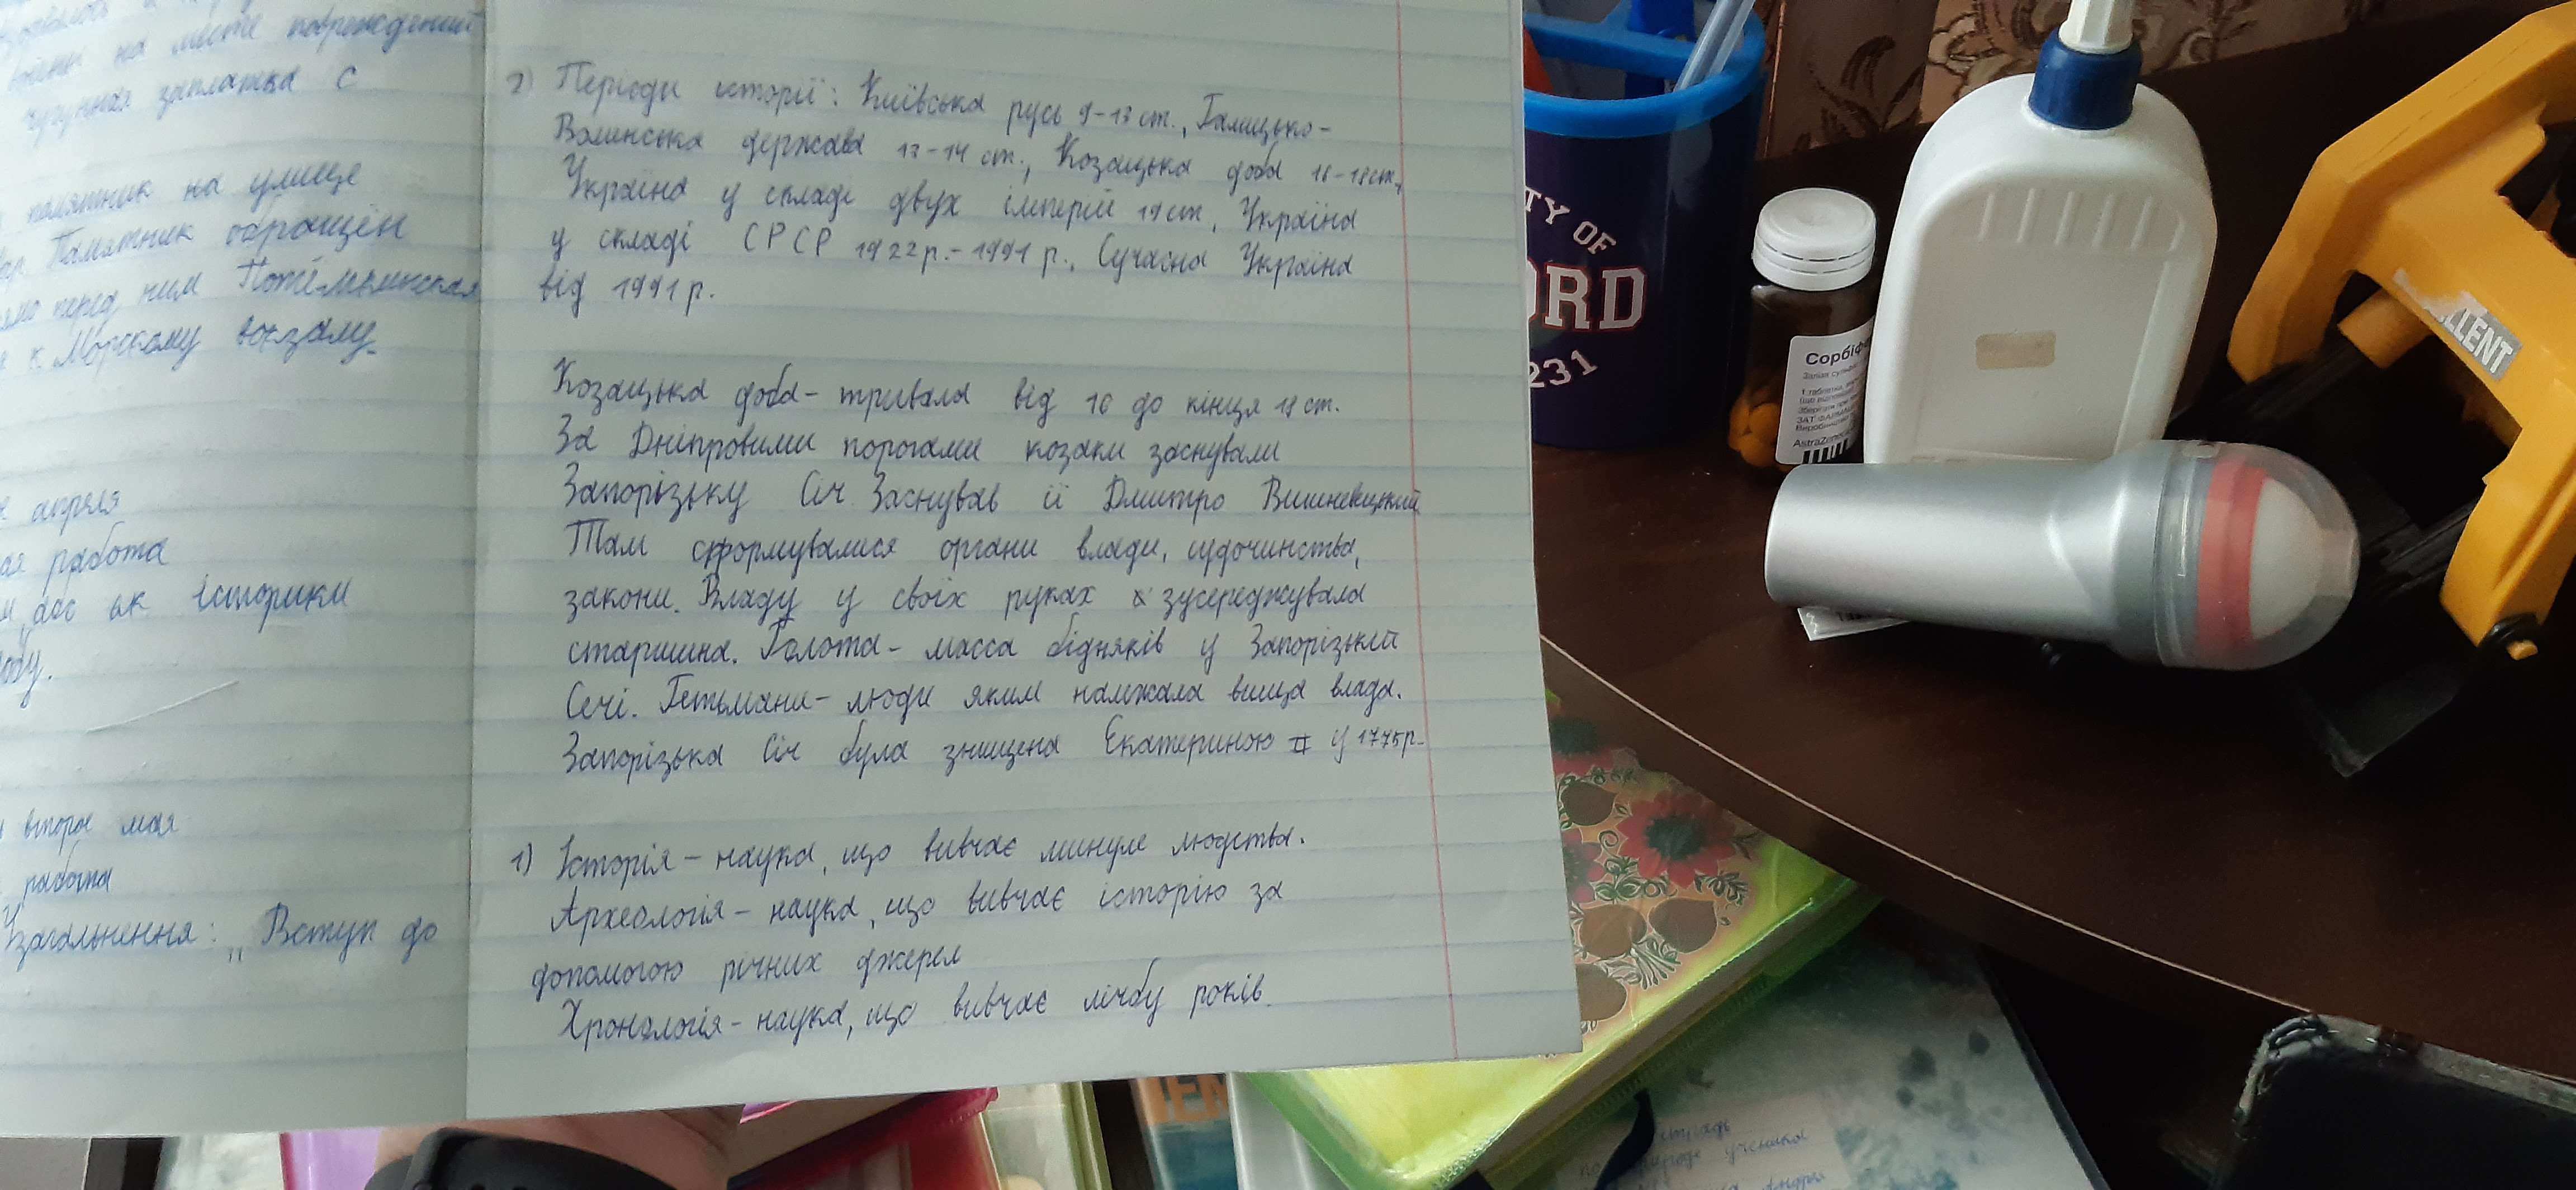 войны на месте повреждений
чугунная заплатка с
памятник на улице
Памятник обращён
перед ним Потёмкинская
к Морскому вокзалу.
апреля
работа
як історики
второе мая
работа
Узагальнення: „Вступ до
2) Періоди історії: Київська русь 9-13 ст., Галицько-
Волинська держава 13-14 ст., Козацька доба 16-18 ст.,
Україна у складі двух імперій 19 ст, Україна
у складі СРСР 1922 р.-1991 р., Сучасна Україна
від 1991 р.
Козацька доба - тривала від 16 до кінця 18 ст.
За Дніпровими порогами козаки заснували
Запорізьку Січ. Заснував її Дмитро Вишневецький
Там сформувалися органи влади, судочинства,
закони. Владу у своїх руках зусереджувала
старшина. Голота - масса бідняків у Запорізькій
Сечі. Гетьмани - люди яким належала вища влада.
Запорізька Січ була знищена Екатериною II у 1775 р.
1) Історія - наука, що вивчає минуле людства.
Археологія - наука, що вивчає історію за
допомогою річних джерел
Хронологія - наука, що вивчає лічбу років.
TY OF
ORD
231
Сорбіф
AstraZen
LLENT
TEM
ученика